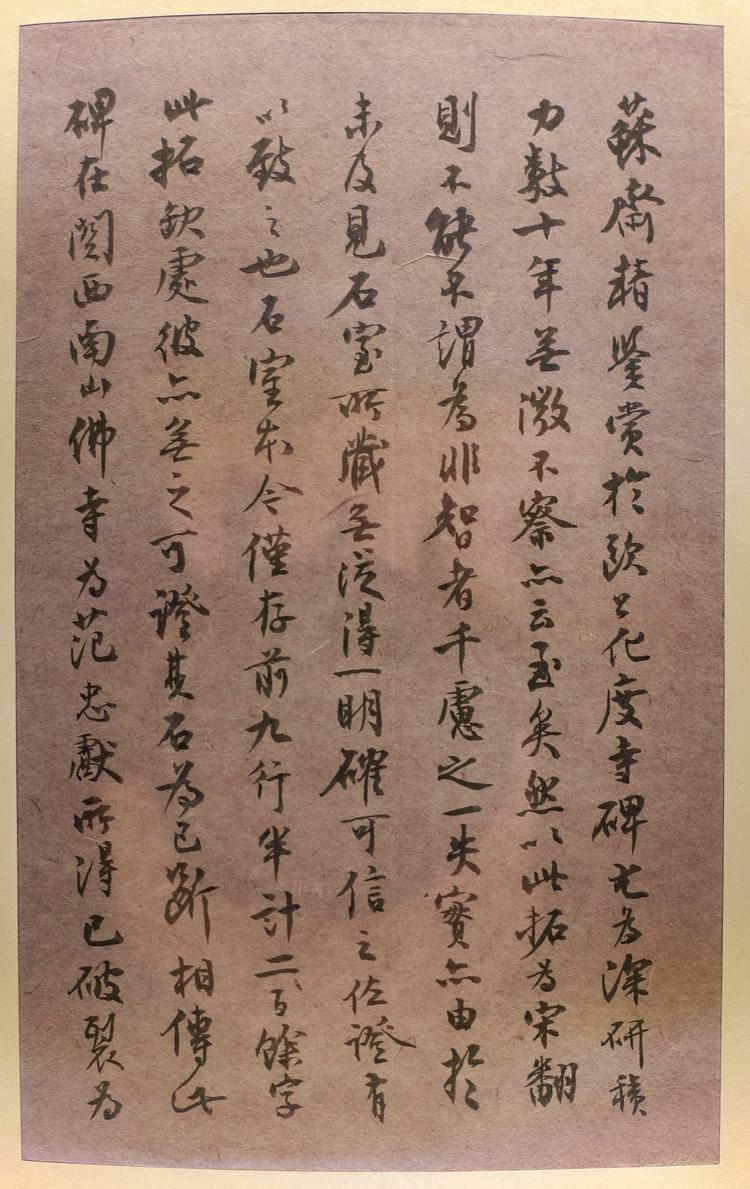 蘇齋精鑒賞於歐公化度寺碑尤為深研積
力數十年無微不察亦云至矣然以此拓為宋翻
則不能不謂為非智者千慮之一失實亦由於
未及見石室所藏無從得一明確可信之佐證有
以致之也石室本今僅存前九行半計二百餘字
此拓缺處彼亦無之可證其石為已斷相傳此
碑在關西南山佛寺為范忠獻所得已破裂為